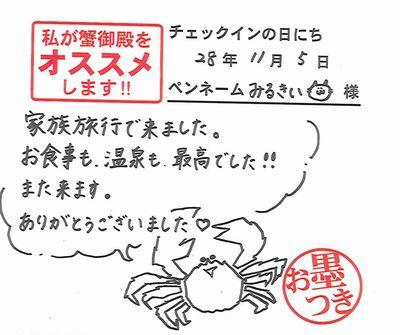 私が蟹御殿を
オススメ
します!!
チェックインの日にち
28年 11月 5日
ペンネーム みるきぃ 様
家族旅行で来ました。
お食事も、温泉も、最高でした!!
また来ます。
ありがとうございました♡
お墨つき